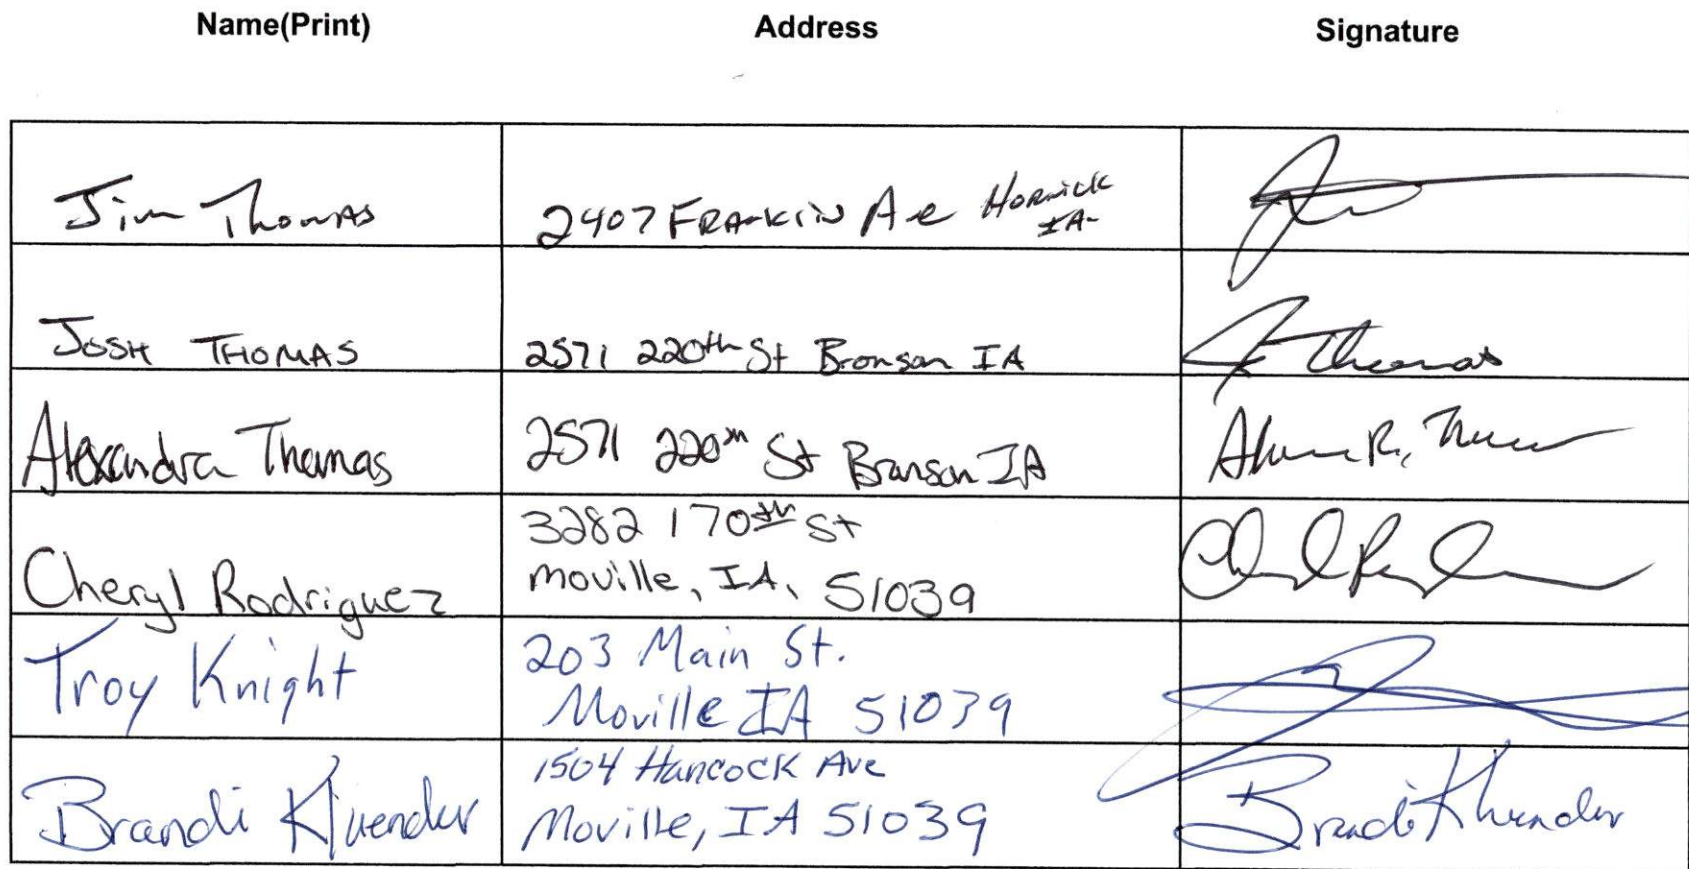 Name(Print) Address Signature
Jim Thomas 2407 Frankin Ave Hornick
IA
Josh Thomas 2571 220th St Bronson IA Thomas
Alexandra Thomas 2571 220th St Bronson IA
Cheryl Rodriguez 3282 170th St
Moville, IA, 51039
Troy Knight 203 Main St.
Moville IA 51039
Brandi Kluender 1504 Hancock Ave
Moville, IA 51039 Brandi Kluender